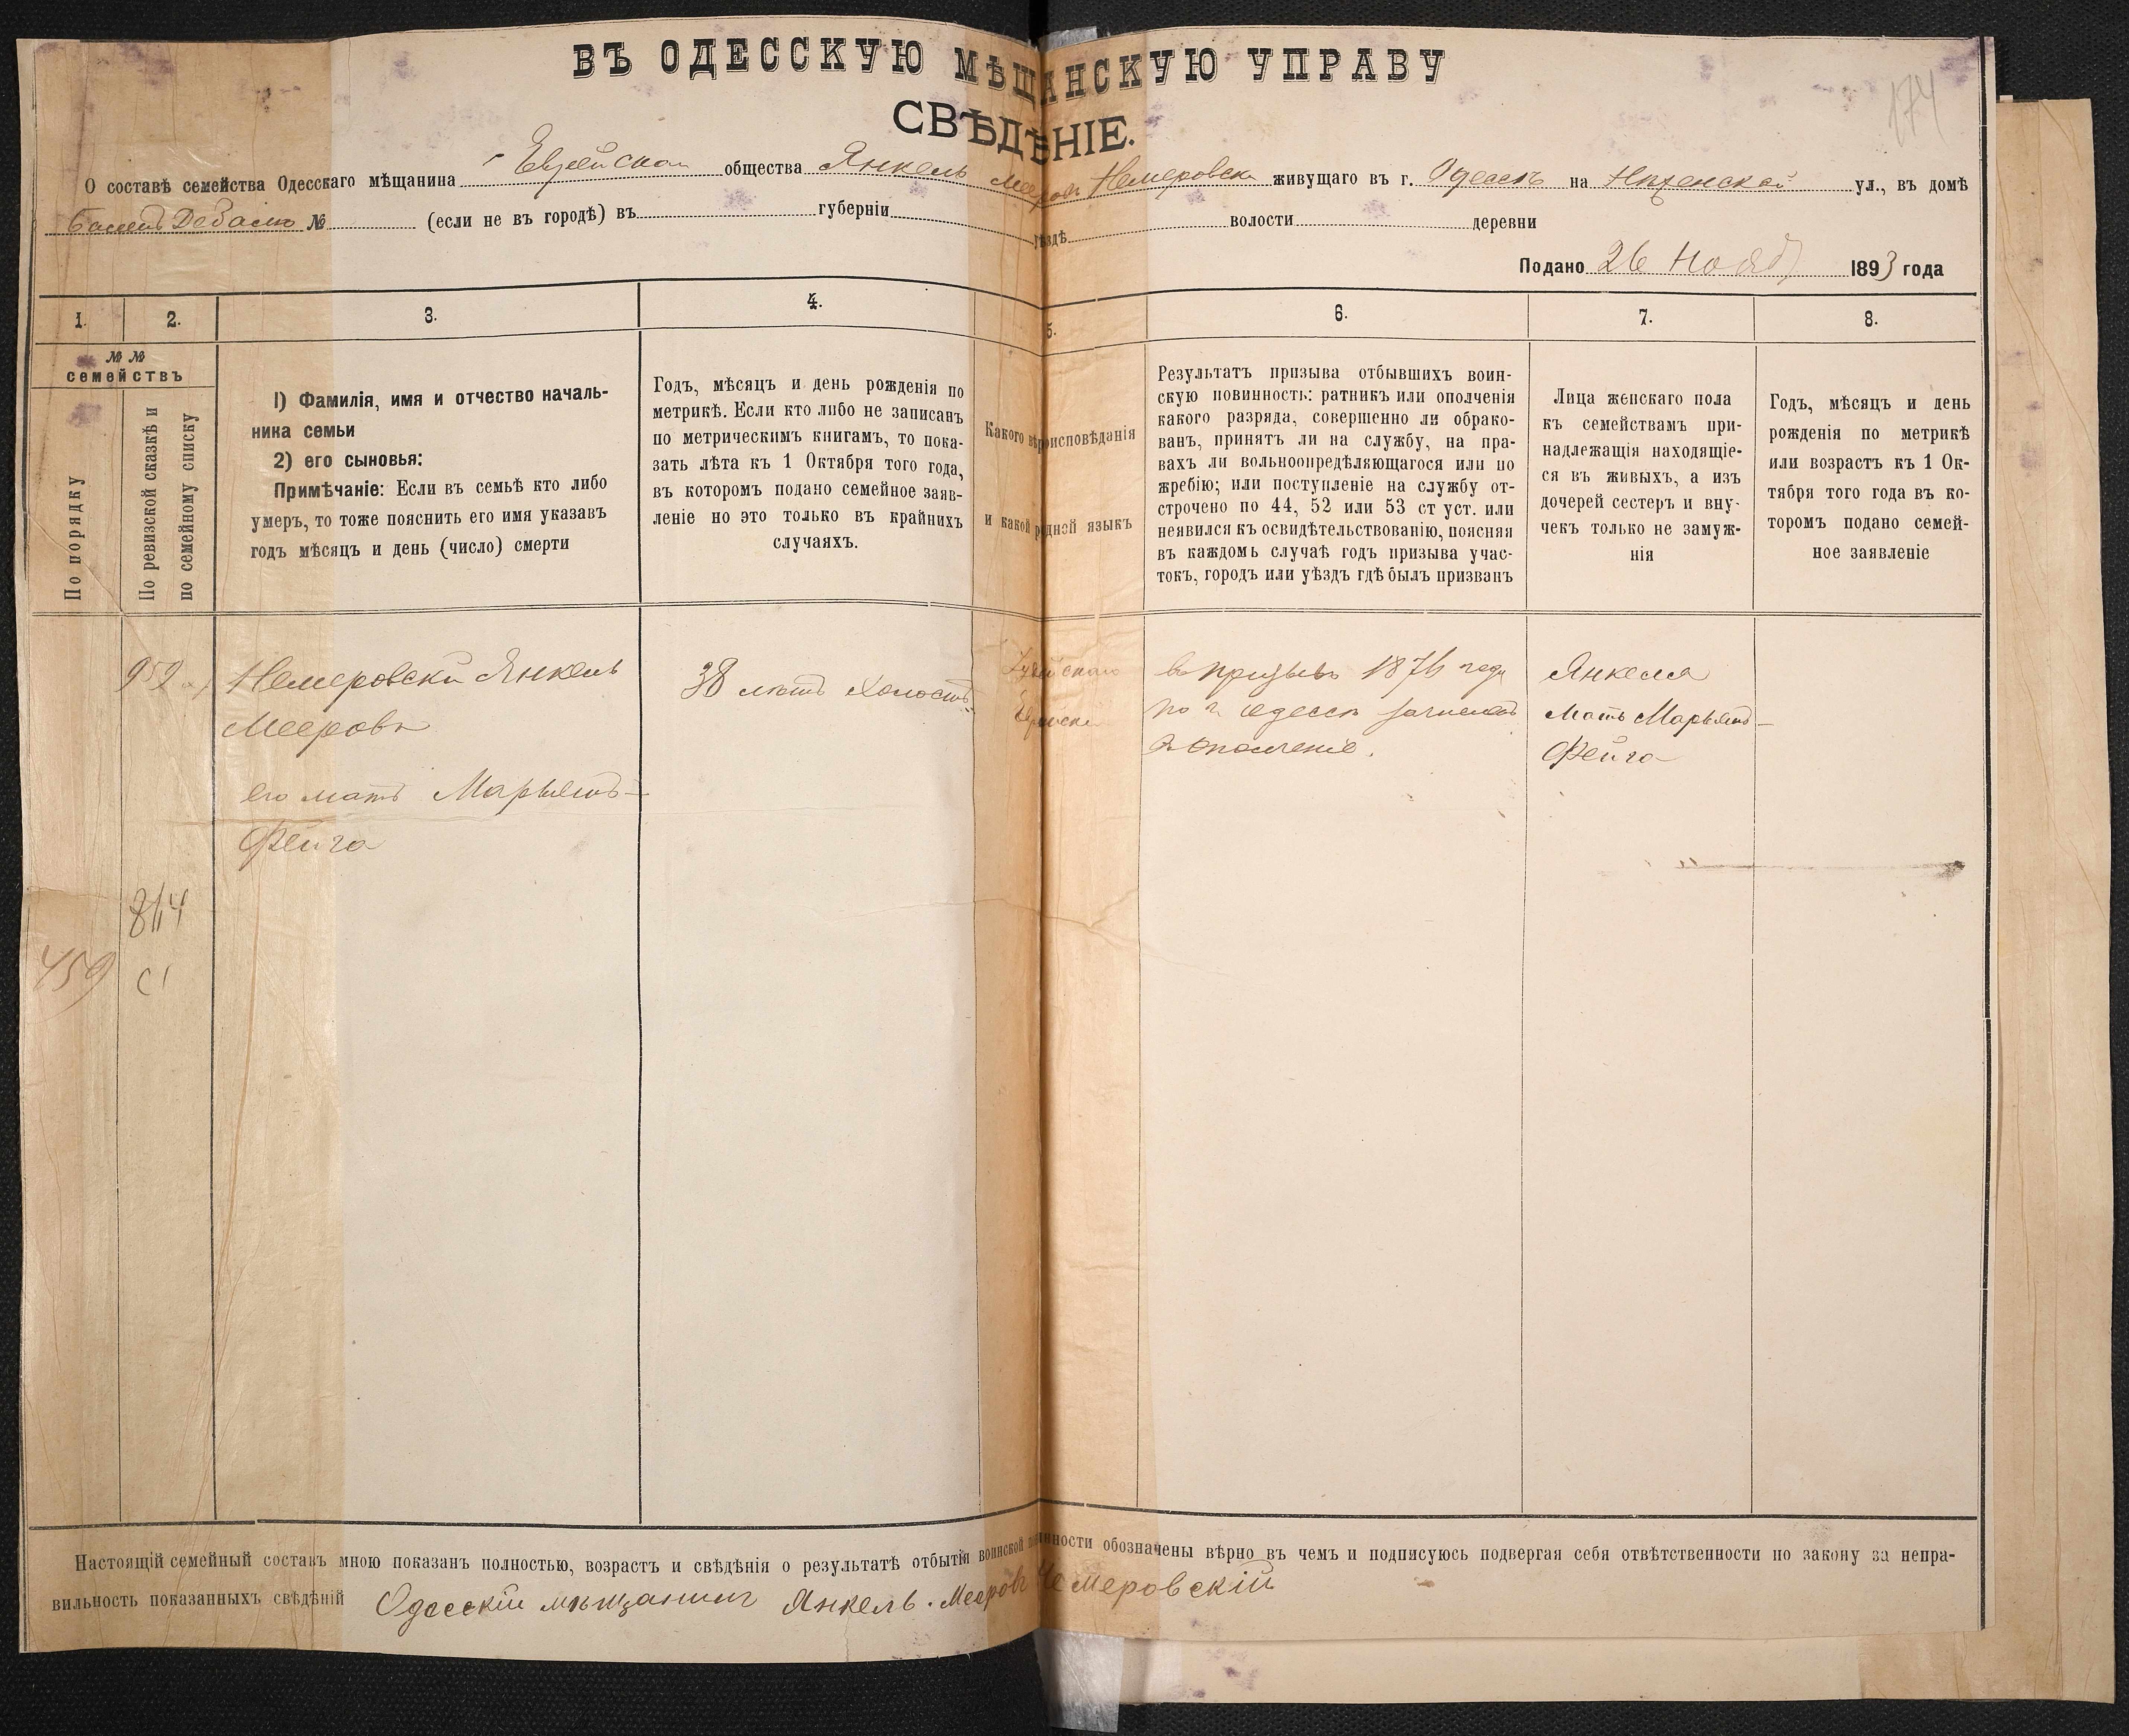 174
ВЪ ОДЕССКУЮ МѢЩАНСКУЮ УПРАВУ
СВѢДѢНІЕ.
О составѣ семейства Одесскаго мѣщанина Еврейскаго общества Янкель Мееровъ Немеровски живущаго въ г. Одессѣ на Нѣженской ул., въ домѣ
№ (если не въ городѣ) въ губерніи уѣздѣ волости деревни
Подано 26 Нояб 1893 года
1. 2. 3. 4. 5. 6. 7. 8.
№ № семействъ
По порядку
По ревизской сказкѣ и
по семейному списку
1) Фамилія, имя и отчество началь-
ника семьи
2) его сыновья:
Примѣчаніе: Если въ семьѣ кто либо
умеръ, то тоже пояснить его имя указавъ
годъ мѣсяцъ и день (число) смерти
Годъ, мѣсяцъ и день рожденія по
метрикѣ. Если кто либо не записанъ
по метрическимъ книгамъ, то пока-
зать лѣта къ 1 Октября того года,
въ которомъ подано семейное заяв-
леніе но это только въ крайнихъ
случаяхъ.
Какого вѣроисповѣданія
и какой родной языкъ
Результатъ призыва отбывшихъ воин-
скую повинность: ратникъ или ополченія
какого разряда, совершенно ли обрако-
ванъ, принятъ ли на службу, на пра-
вахъ ли вольноопредѣляющагося или по
жребію; или поступленіе на службу от-
строчено по 44, 52 или 53 ст уст. или
неявился къ освидѣтельствованію, поясняя
въ каждомъ случаѣ годъ призыва учас-
токъ, городъ или уѣздъ гдѣ былъ призванъ
Лица женскаго пола
къ семействамъ при-
надлежащія находящіе-
ся въ живыхъ, а изъ
дочерей сестеръ и вну-
чекъ только не замуж-
нія
Годъ, мѣсяцъ и день
рожденія по метрикѣ
или возрастъ къ 1 Ок-
тября того года въ ко-
торомъ подано семей-
ное заявленіе
959 Немеровски Янкель
Мееровъ
его мать Марьямъ-
Фейга
38 лѣтъ холостъ
Іудейскаго
Еврейски
въ призывъ 1876 году
по г. Одессѣ зачисленъ
въ ополченіе.
Янкеля
мать Марьямъ-
Фейга
814
459
Настоящій семейный составъ мною показанъ полностью, возрастъ и свѣдѣнія о результатѣ отбытія воинской повинности обозначены вѣрно въ чемъ и подписуюсь подвергая себя отвѣтственности по закону за непра-
вильность показанныхъ свѣдѣній Одесскій мѣщанинъ Янкель. Мееровъ Немеровскій